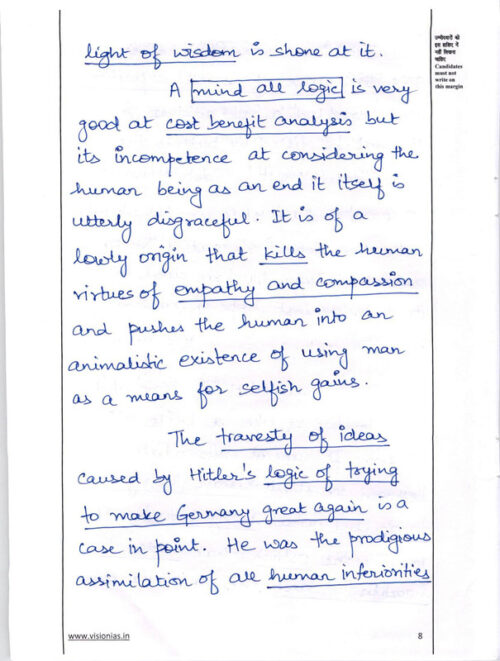 light of wisdom is shone at it.
A mind all logic is very
good at cost benefit analysis but
its incompetence at considering the
human being as an end it itself is
utterly disgraceful. It is of a
lowly origin that kills the human
virtues of empathy and compassion
and pushes the human into an
animalistic existence of using man
as a means for selfish gains.
The travesty of ideas
caused by Hitler's logic of trying
to make Germany great again is a
case in point. He was the prodigious
assimilation of all human inferiorities
उम्मीदवारों को
इस हाशिए में
नहीं लिखना
चाहिए
Candidates
must not
write on
this margin
www.visionias.in
8